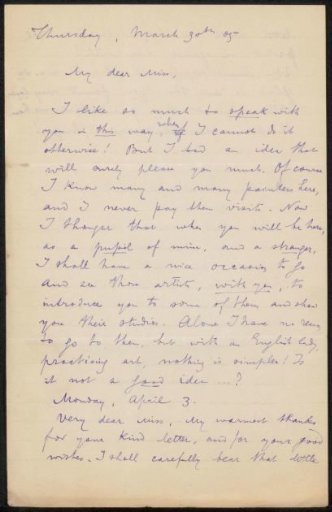 Thursday, March 30th 05
My dear Miss,
I like so much to speak with
you in this way, when I cannot do it
otherwise! But I had an idea that
will surely please you much. Of course
I know many and many painters here,
and I never pay them visits. Now
I thought that when you will be here,
as a pupil of mine, and a stranger,
I shall have a nice occasion to go
and see those artists, with you, to
introduce you to some of them and show
you their studios. Alone I have no
to go to them, but with an English lady,
practising art, nothing is simpler! Is
it not a good idea ...?
Monday, April 3.
Very dear Miss, My warmest thanks
for your kind letter, and for your good
wishes. I shall carefully bear that little